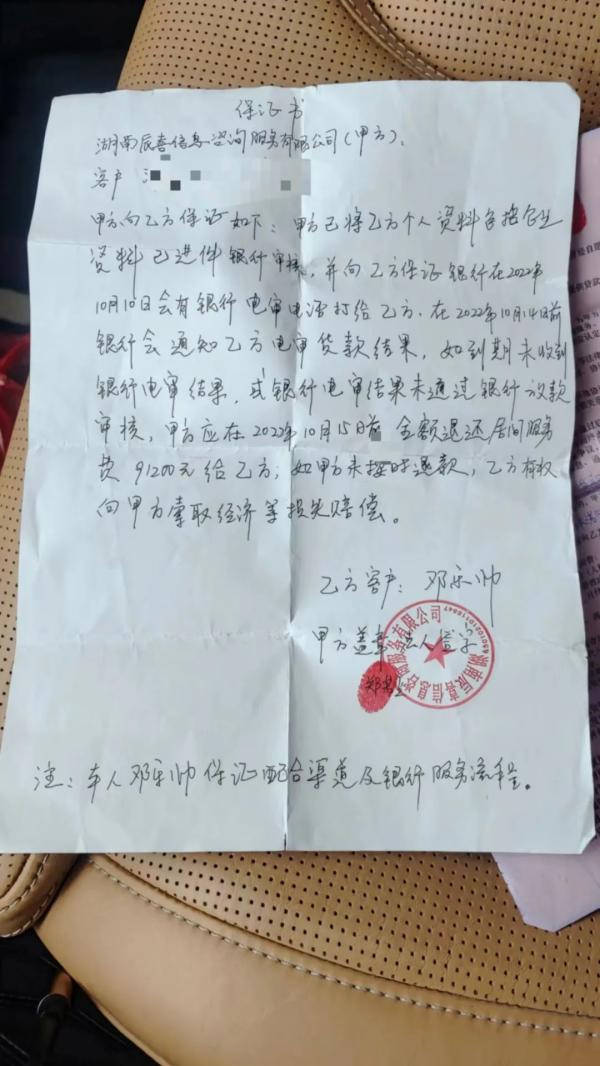 保证书
湖南辰喜信息咨询服务有限公司(甲方)、
客户
甲方向乙方保证如下:甲方已将乙方个人资料包括企业
资料已进件银行审核,并向乙方保证银行在2022年
10月10日会有银行电审电话打给乙方.在2022年10月14日前
银行会通知乙方电审贷款结果,如到期未收到
银行电审结果,或银行电审结果未通过银行放款
审核,甲方应在2022年10月15日前 全额退还居间服务
费 91200元给乙方;如甲方未按时退款,乙方有权
向甲方索取经济等损失赔偿。
乙方客户:邓乐帅
甲方盖章 法人签字
湖南辰喜信息咨询服务有限公司
注:本人邓乐帅保证配合渠道及银行服务流程。